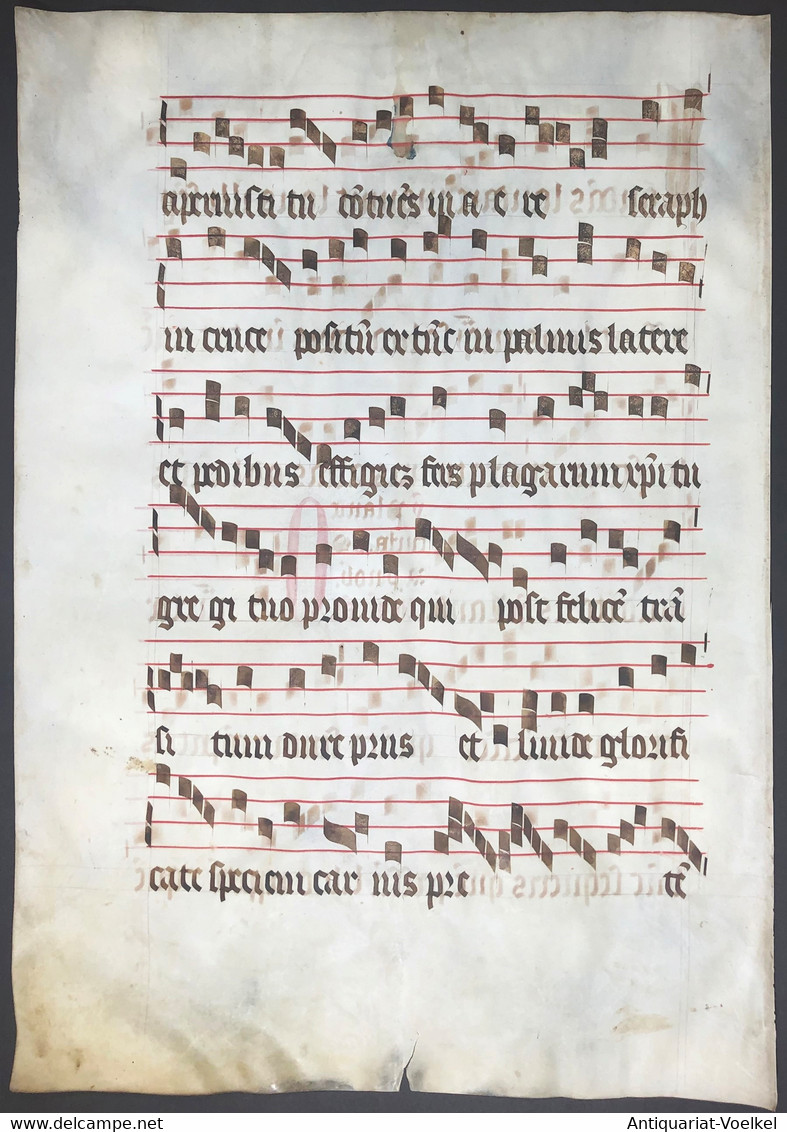 aperuisti tu cōtuēs in a e re seraph
in cruce positū ex tūc in palmis latere
et pedibus effigiez fers plagarum xp̄i tu
gre gi tuo prouide qui post felicē trā
si tum dure prius et liuide glorifi
cate speciem car nis pre tē
Antiquariat-Voelkel